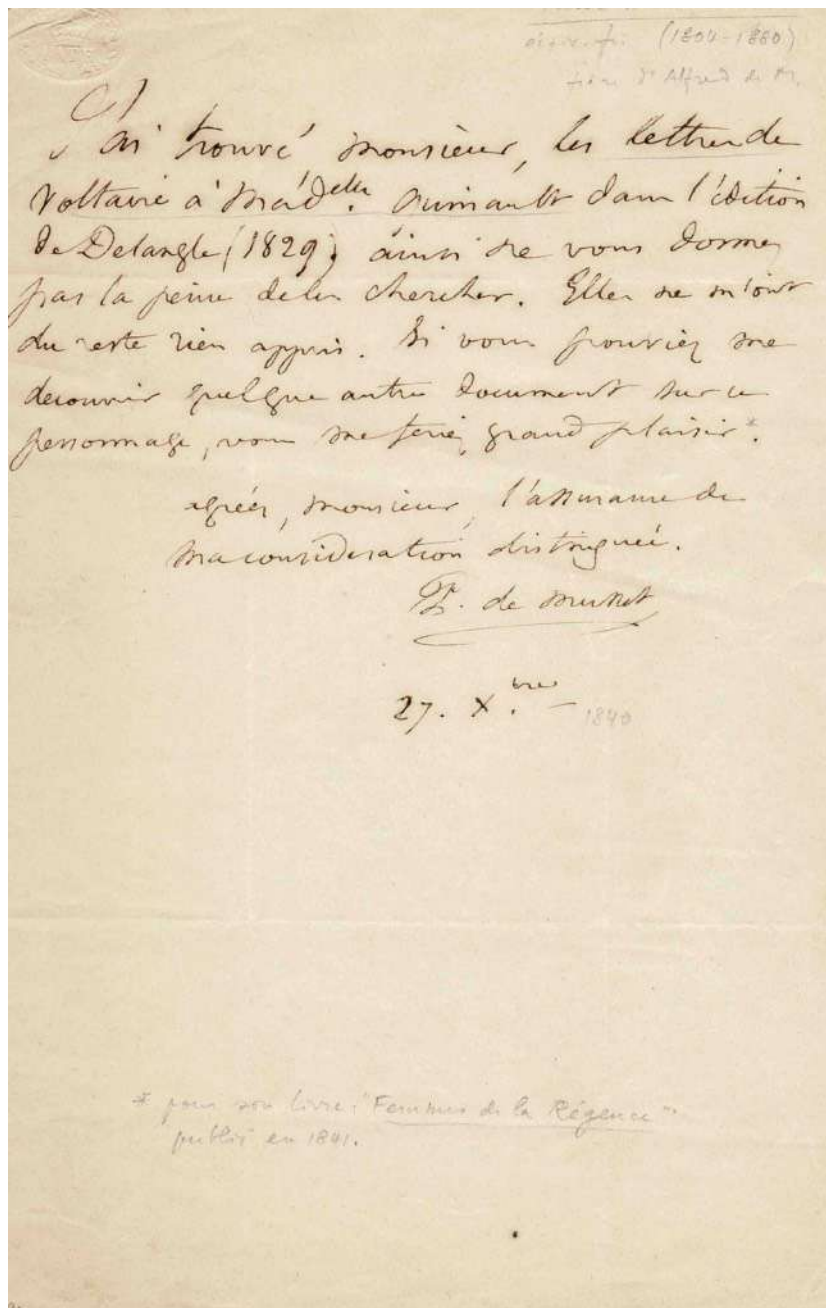 (1804-1880)
frère d'Alfred de M.
J'ai trouvé monsieur, les lettres de
Voltaire à Mad.elle Quinault dans l'édition
de Delangle (1829) ainsi ne vous donnez
pas la peine de les chercher. Elles ne m'ont
du reste rien appris. Si vous pouviez me
découvrir quelque autre document sur ce
personnage, vous me feriez grand plaisir*.
agréez, monsieur, l'assurance de
ma considération distinguée.
P. de Musset
27. X.bre 1840
* pour son livre: "Femmes de la Régence"
publié en 1841.